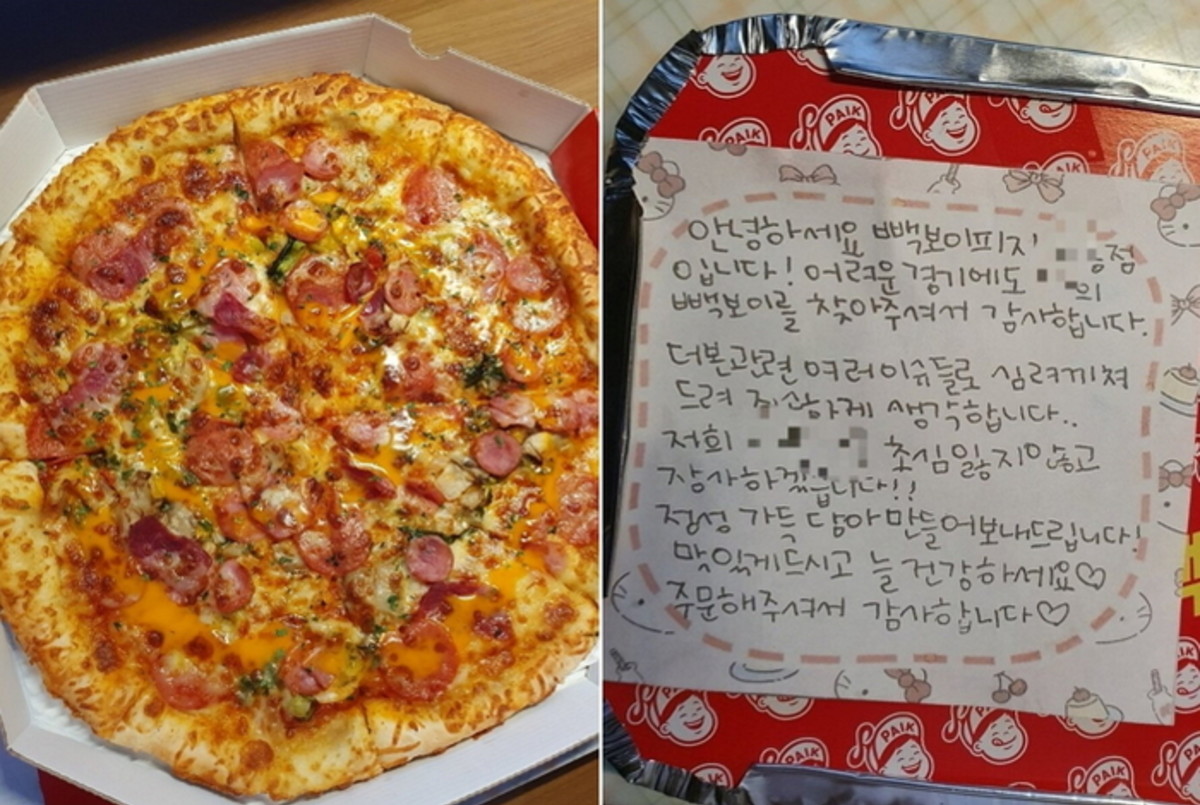 PAIK
PAIK
PAIK
PAIK
PAIK
안녕하세요 빽보이피자 점
입니다! 어려운 경기에도 의
빽보이를 찾아주셔서 감사합니다.
더본관련 여러이슈들로 심려끼쳐
드려 죄송하게 생각합니다..
저희 초심잃지않고
장사하겠습니다!!
정성 가득 담아 만들어보내드립니다!
맛있게드시고 늘 건강하세요♡
주문해주셔서 감사합니다♡
PAIK
PAIK
PAIK
PAIK
PAIK
PAIK